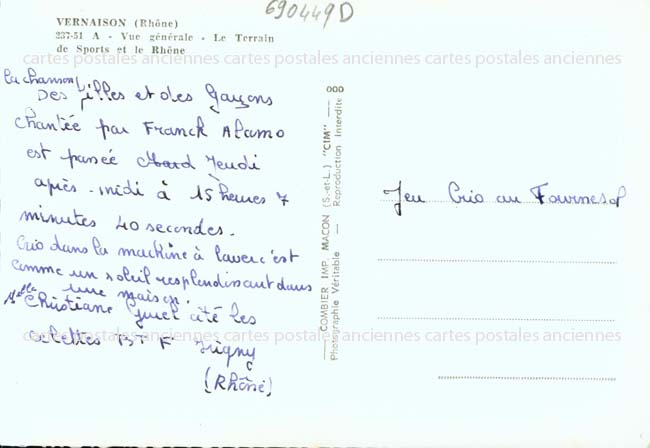 690449D
VERNAISON (Rhône)
237-51 A - Vue générale - Le Terrain
de Sports et le Rhône
cartes postales anciennes cartes postales anciennes cartes postales anciennes
la chanson
Des filles et des Garçons
chantée par Franck Alamo
est passée Mard Jeudi
après-midi à 15 heures 7
minutes 40 secondes.
Crio dans la machine à laver c'est
comme un soleil resplendissant dans
une maison.
Melle Christiane cité les
Bt F Irigny
(Rhône)
COMBIER IMP. MACON (S.-et-L.) "CIM"
Photographie Véritable - Reproduction Interdite
Jeu Crio au Fournesol
cartes postales anciennes cartes postales anciennes cartes postales anciennes